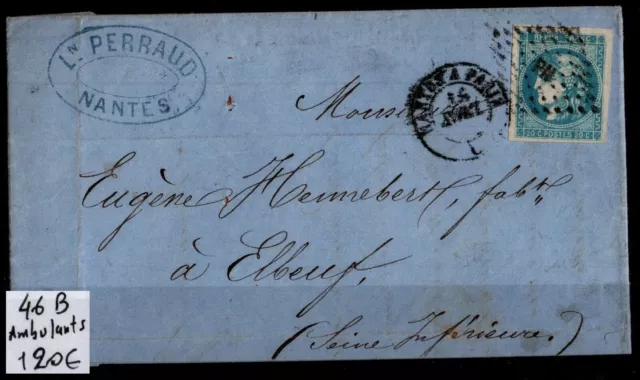 LN PERRAUD
NANTES.
NANTES A PARIS
20 C POSTES 20 C
Monsieur
Eugène Hennebert, fabt
à Elbeuf,
(Seine Inférieure.)
46 B
Ambulants
120€